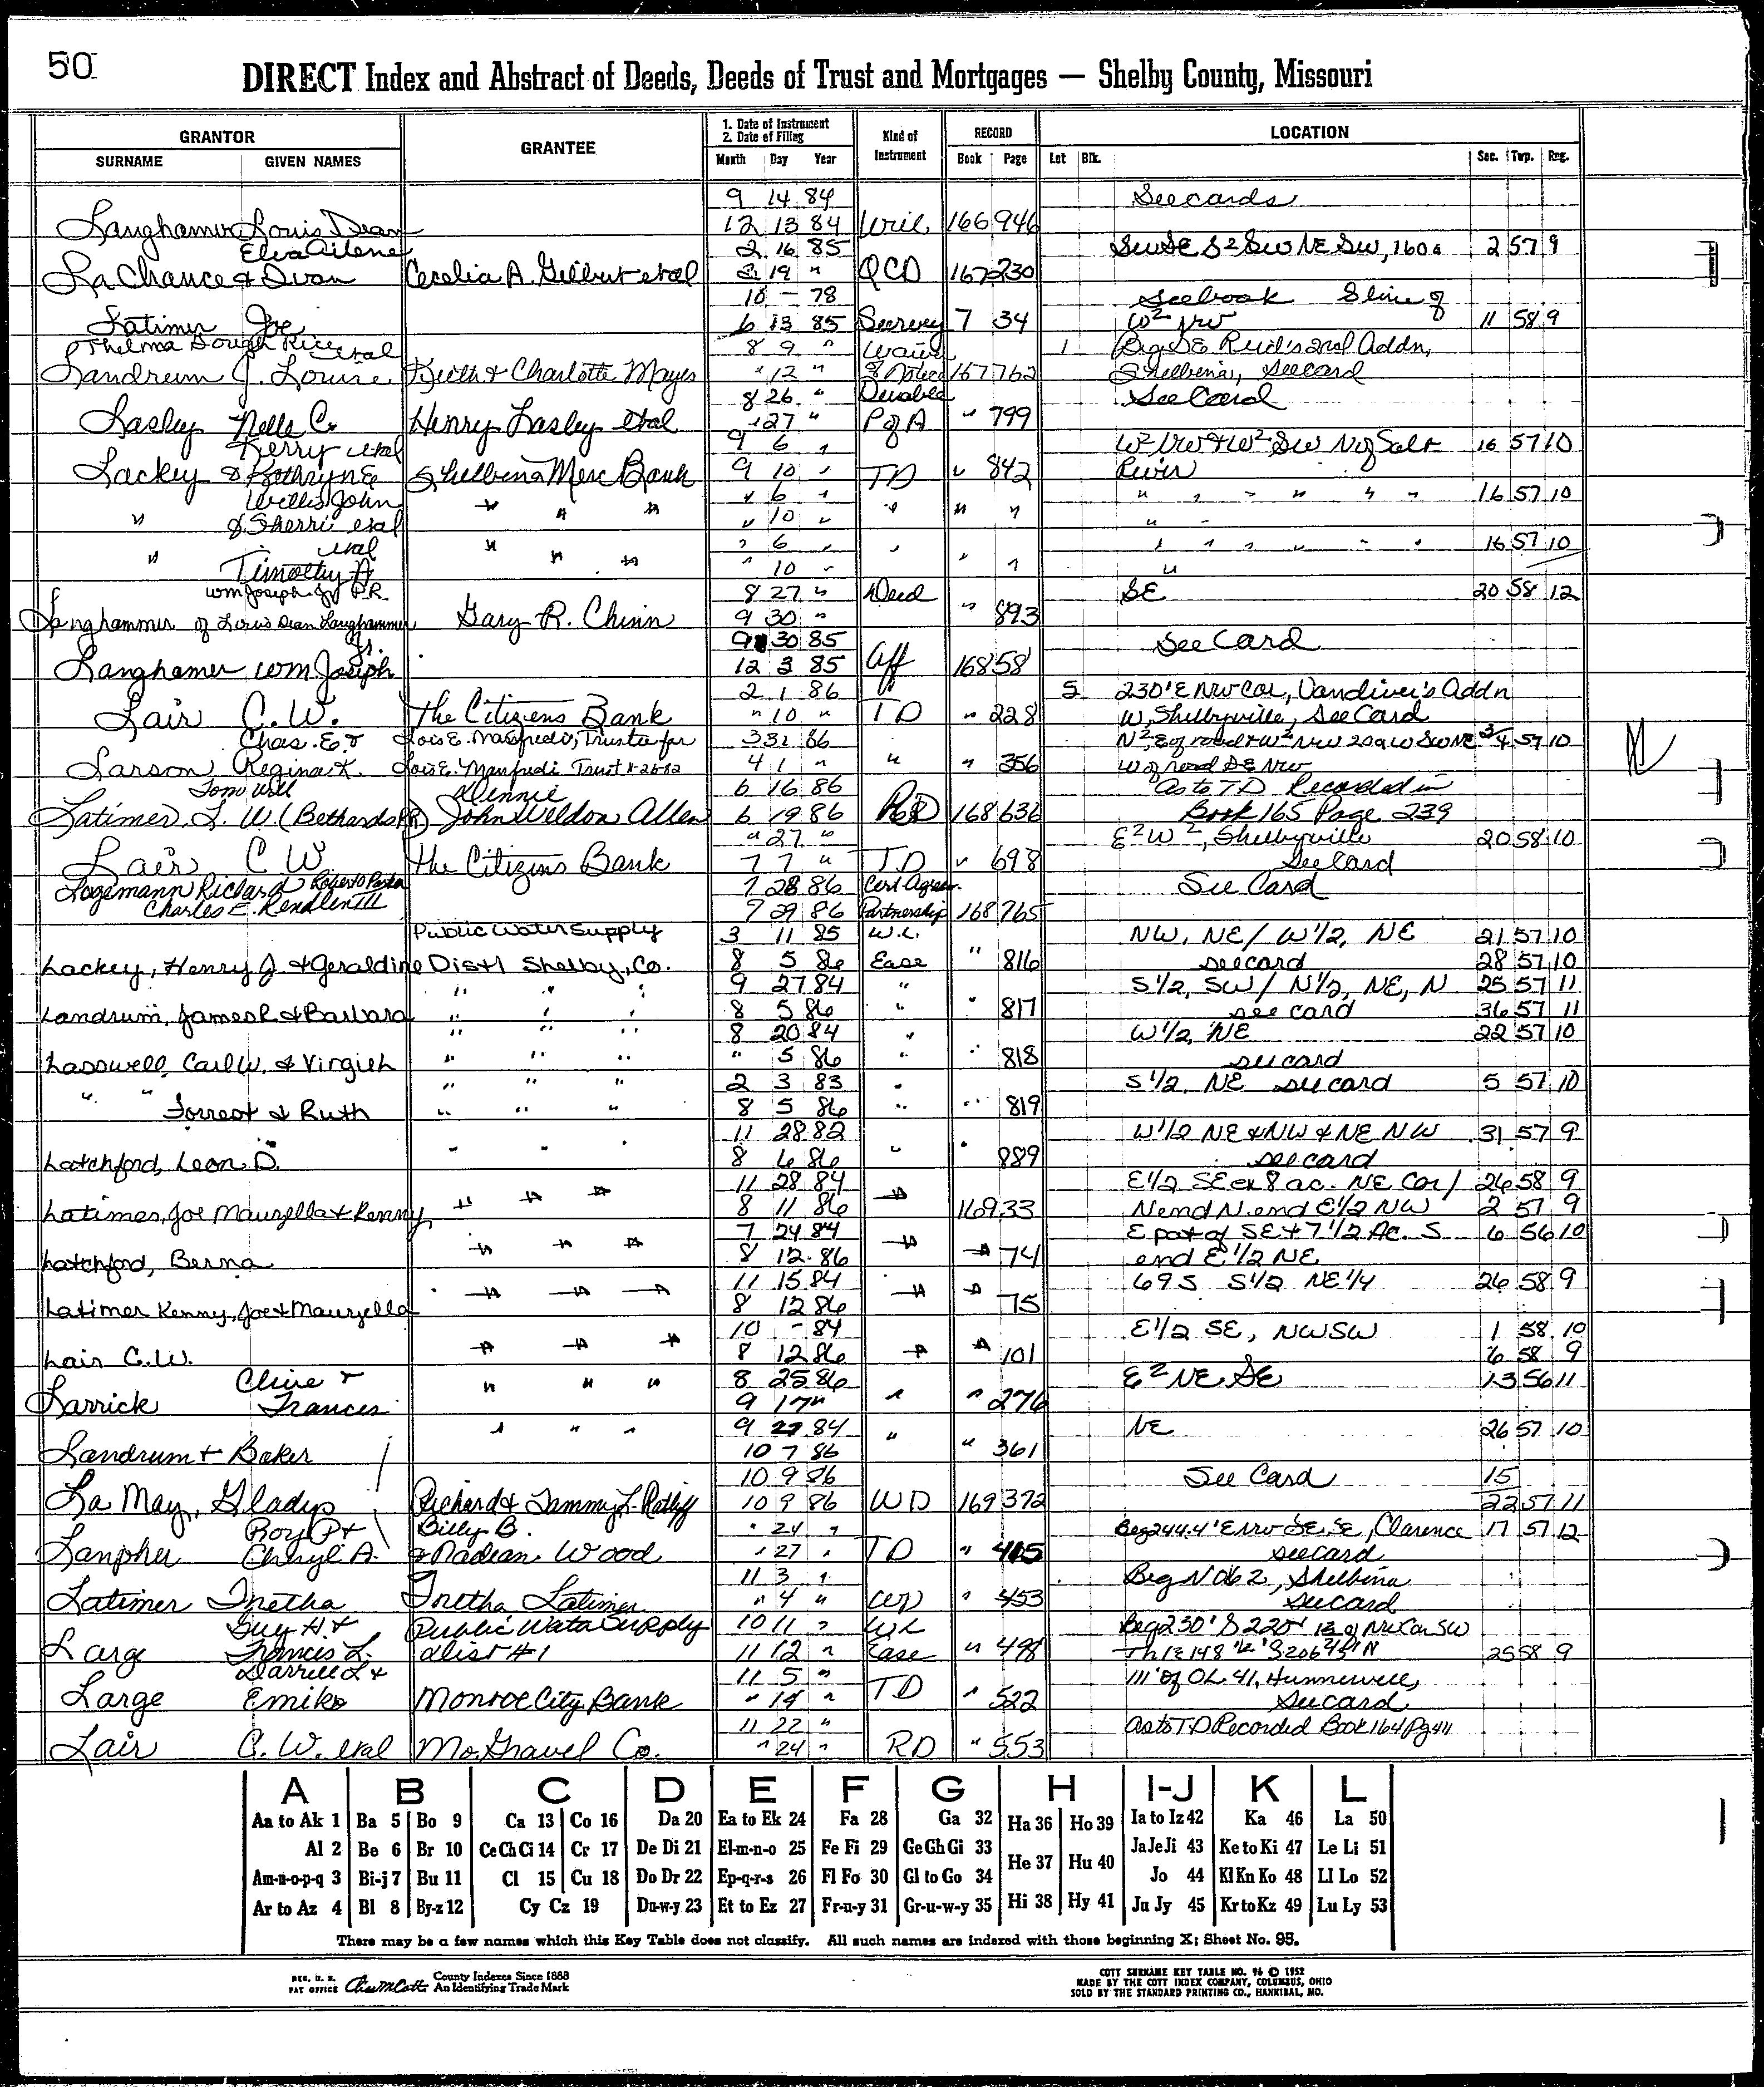 50
DIRECT Index and Abstract of Deeds, Deeds of Trust and Mortgages — Shelby County, Missouri
GRANTOR GRANTEE 1. Date of Instrument 2. Date of Filing Kind of Instrument RECORD LOCATION
SURNAME GIVEN NAMES Month Day Year Book Page Lot Blk. Sec. Twp. Rng.
9 14 84 See cards
Langhamer Louis Dean 12 13 84 Will 166 946
Elva Ailene 2 16 85 SwSE S2 Sw NE Sw, 160a 2 57 9
La Chance & Ivan Cecelia A. Gilbert etal 2 19 " QCD 167 230
10 - 78 See book S line of
Latimer Joe 6 13 85 Survey 7 34 W2 NW 11 58 9
Thelma Dough Rice etal 8 9 " Waiver 1 Beg SE Reid's 2nd Addn,
Landrum J. Louise Keith & Charlotte Mayes " 12 " & Notice 167 762 Shelbina, See card
8 26 " Durable See Card
Lasley Nelle C. Henry Lasley etal " 27 " P of A " 799
Kerry etal 9 6 " W2 NW & W2 SW N of Salt 16 57 10
Lackey & Kathryn E Shelbina Merc Bank 9 10 " TD " 842 River
Willis John " " " " 6 " " " " " " " " " " " 16 57 10
" & Sherri etal " 10 " " "
etal " " " " 6 " " " " " " " " " " 16 57 10
" Timothy A " 10 " "
Wm Joseph Jr P.R. 8 27 " Deed SE 20 58 12
Langhammer of Louis Dean Langhammer Gary R. Chinn 9 30 " " 893
Jr. 9 30 85 See Card
Langhamer Wm Joseph 12 3 85 Aff 168 58
2 1 86 5 230' E NW Cor, Vandiver's Addn
Lair C. W. The Citizens Bank " 10 " TD " 228 W, Shelbyville, See Card
Chas. E. & Lois E. Manfredi, Trustee for 3 31 86 N2, E of road & W2 NW 20a W SW NE 3/4 57 10
Larson Regina K. Lois E. Manfredi Trust 11-26-82 4 1 " " " 356 W of road SE NW
Tom Will Dennie 6 16 86 As to TD Recorded in
Latimer, L. W. (Bethards PR) John Weldon Allen 6 19 86 RD 168 636 Book 165 Page 239
" 27 " E2 W2, Shelbyville 20 58 10
Lair C W The Citizens Bank 7 7 " TD " 698 See Card
Logemann Richard Roberto Pasta 7 28 86 Cert Agree. See Card
Charles E. Rendlen III 7 29 86 Partnership 168 765
Public Water Supply 3 11 85 W.L. NW, NE / W1/2, NE 21 57 10
Lackey, Henry J. & Geraldine Dist 1 Shelby, Co. 8 5 86 Ease " 816 see card 28 57 10
" " " 9 27 84 " S1/2, SW / N1/2, NE, N 25 57 11
Landrum, James R & Barbara " " " 8 5 86 " " 817 see card 36 57 11
" " " 8 20 84 " W1/2, NE 22 57 10
Lasswell, Carl W. & Virgieh " " " " 5 86 " " 818 see card
" " " 2 3 83 " S1/2, NE see card 5 57 10
" " Forrest & Ruth " " " 8 5 86 " " 819
11 28 82 W1/2 NE & NW & NE NW 31 57 9
Latchford, Leon D. " " " 8 6 86 " " 889 see card
11 28 84 E1/2 SE ex 8 ac. NE Cor/ 26 58 9
Latimer, Joe Mauzella & Kenny, " " " 8 11 86 " 169 33 N end N. end E1/2 NW 2 57 9
7 24 84 E part of SE & 7 1/2 Ac. S 6 56 10
Latchford, Berna " " " 8 12 86 " " 74 end E 1/2 NE
11 15 84 69 S S1/2 NE 1/4 26 58 9
Latimer Kenny, Joe & Mauzella " " " 8 12 86 " " 75
10 - 84 E1/2 SE, NWSW 1 58 10
Lair C.W. " " " 8 12 86 " " 101 6 58 9
Clive & 8 25 86 E2 NE SE 13 56 11
Larrick Frances " " " 9 17 " " " 276
9 27 84 NE 26 57 10
Landrum & Baker " " " 10 7 86 " " 361
10 9 86 See Card 15
La May, Gladys Richard & Tammy L. Ratliff 10 9 86 WD 169 372 22 57 11
Roy P & Billy B. " 24 " Beg 244.4' E NW SE, SE, Clarence 17 57 12
Lanpher Cheryl A. & Nadean Wood " 27 " TD " 405 see card
11 3 " Beg N Ob 2, Shelbina
Latimer Inetha Inetha Latimer " 4 " WD " 453 see card
Guy H & Public Water Supply 10 11 " WL Beg 230' S 220' E of NW Cor SW
Large Francis L. dist #1 11 12 " Ease " 498 25 58 9
Darrell L & 11 5 " 111' of OL 41, Hunnewell,
Large Emiko Monroe City Bank " 14 " TD " 522 See card
11 22 " As to TD Recorded Book 164 Pg 411
Lair C. W. etal Mo. Gravel Co. " 24 " RD " 553
A B C D E F G H I-J K L
Aa to Ak 1 Ba 5 Bo 9 Ca 13 Co 16 Da 20 Ea to Ek 24 Fa 28 Ga 32 Ha 36 Ho 39 Ia to Iz 42 Ka 46 La 50
Al 2 Be 6 Br 10 Ce Ch Ci 14 Cr 17 De Di 21 El-m-n-o 25 Fe Fi 29 Ge Gh Gi 33 He 37 Hu 40 Ja Je Ji 43 Ke to Ki 47 Le Li 51
Am-n-o-p-q 3 Bi-j 7 Bu 11 Cl 15 Cu 18 Do Dr 22 Ep-q-r-s 26 Fl Fo 30 Gl to Go 34 Jo 44 Kl Kn Ko 48 Ll Lo 52
Ar to Az 4 Bl 8 By-z 12 Cy Cz 19 Du-w-y 23 Et to Ez 27 Fr-u-y 31 Gr-u-w-y 35 Hi 38 Hy 41 Ju Jy 45 Kr to Kz 49 Lu Ly 53
There may be a few names which this Key Table does not classify. All such names are indexed with those beginning X; Sheet No. 95.
REG. U. S. PAT OFFICE County Indexes Since 1888 An Identifying Trade Mark
COTT SURNAME KEY TABLE NO. 96 © 1952
MADE BY THE COTT INDEX COMPANY, COLUMBUS, OHIO
SOLD BY THE STANDARD PRINTING CO., HANNIBAL, MO.